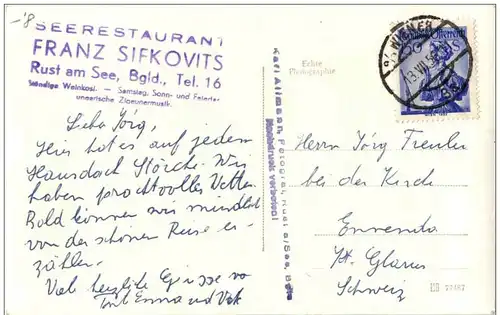 SEERESTAURANT
FRANZ SIFKOVITS
Rust am See, Bgld., Tel. 16
Ständige Weinkost. – Samstag, Sonn- und Feiertag
ungarische Zigeunermusik.
Lieber Jörg,
Hier hat es auf jedem
Hausdach Störche. Wir
haben prachtvolles Wetter.
Bald können wir mündlich
von der schönen Reise er-
zählen.
Viele herzliche Grüsse von
Emma und
Echte
Photographie
Karl Altmann, Fotograf, Rust a/See, Bgld
Nachdruck verboten!
WIEN
Herrn Jörg Treuler
bei der Kirche
Ennenda
Kt. Glarus
Schweiz